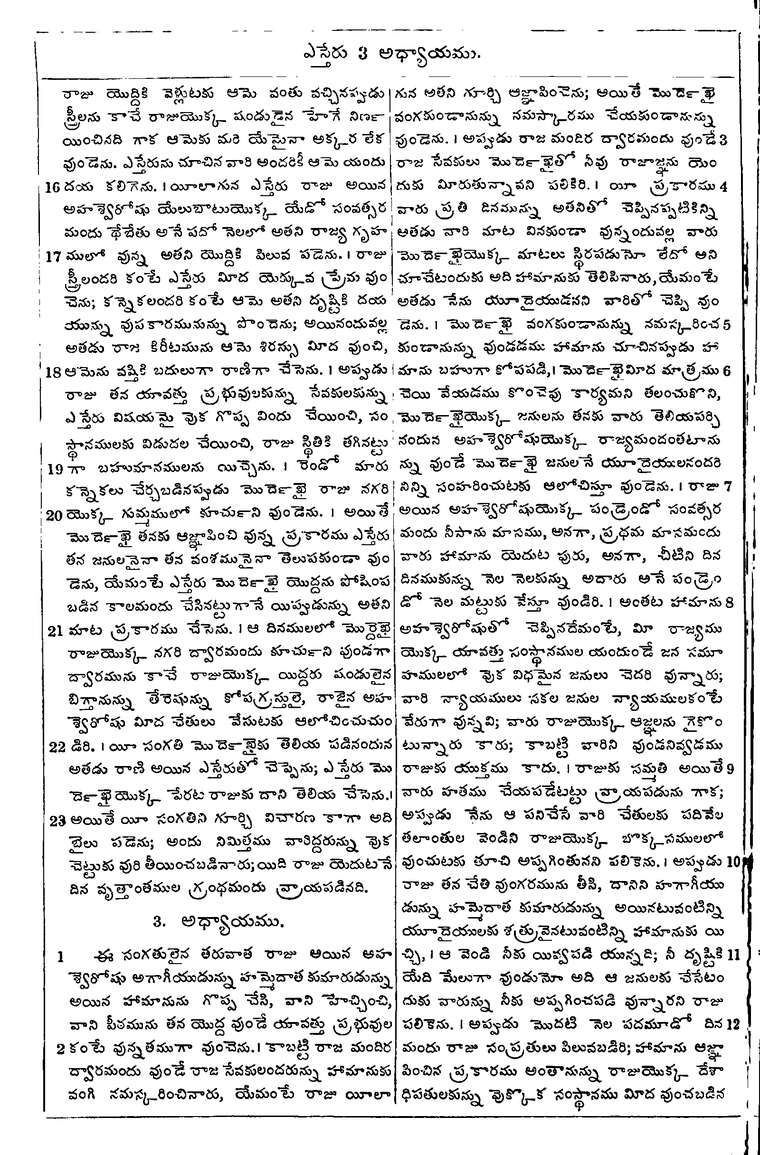 ఎస్తేరు 3 అధ్యాయము.
రాజు యొద్దికి వెళ్లుటకు ఆమె వంతు వచ్చినప్పుడు
స్త్రీలను కాచే రాజుయొక్క షండుడైన హేగే నిర్ణ
యించినది గాక ఆమెకు మరి యేమైనా అక్కర లేక
వుండెను. ఎస్తేరును చూచిన వారి అందరికీ ఆమె యందు
16 దయ కలిగెను. । యీలాగున ఎస్తేరు రాజు అయిన
అహశ్వెరోషు యేలుబాటుయొక్క యేడో సంవత్సర
మందు థేబేతు అనే పదో నెలలో అతని రాజ్య గృహ
17 ములో వున్న అతని యొద్దికి పిలువ పడెను. । రాజు
స్త్రీలందరి కంటే ఎస్తేరు మీద యెక్కువ ప్రేమ వుం
చెను; కన్నెకలందరి కంటే ఆమె అతని దృష్టికి దయ
యున్ను వుపకారమునున్ను పొందెను; అయినందువల్ల
అతడు రాజ కిరీటమును ఆమె శిరస్సు మీద వుంచి,
18 ఆమెను వష్తికి బదులుగా రాణిగా చేసెను. । అప్పుడు
రాజు తన యావత్తు ప్రభువులకున్ను సేవకులకున్ను
ఎస్తేరు విషయమై వొక గొప్ప విందు చేయించి, సం
స్థానములకు విడుదల చేయించి, రాజు స్థితికి తగినట్టు
19 గా బహుమానములను యిచ్చెను. । రెండో మారు
కన్నెకలు చేర్చబడినప్పుడు మొర్దెఖై రాజు నగరి
20 యొక్క గుమ్మములో కూర్చుని వుండెను. । అయితే
మొర్దెఖై తనకు ఆజ్ఞాపించి వున్న ప్రకారము ఎస్తేరు
తన జనులనైనా తన వంశమునైనా తెలుపకుండా వుం
డెను, యేమంటే ఎస్తేరు మొర్దెఖై యొద్దను పోషింప
బడిన కాలమందు చేసినట్టుగానే యిప్పుడున్ను అతని
21 మాట ప్రకారము చేసెను. । ఆ దినములలో మొర్దెఖై
రాజుయొక్క నగరి ద్వారమందు కూర్చుని వుండగా
ద్వారమును కాచే రాజుయొక్క యిద్దరు షండులైన
బిగ్తానున్ను తేరెషున్ను కోపగ్రస్తులై, రాజైన అహ
శ్వెరోషు మీద చేతులు వేసుటకు ఆలోచించుచుం
22 డిరి. । యీ సంగతి మొర్దెఖైకు తెలియ పడినందున
అతడు రాణి అయిన ఎస్తేరుతో చెప్పెను; ఎస్తేరు మొ
ర్దెఖైయొక్క పేరట రాజుకు దాని తెలియ చేసెను. ।
23 అయితే యీ సంగతిని గూర్చి విచారణ కాగా అది
బైలు పడెను; అందు నిమిత్తము వారిద్దరున్ను వొక
చెట్టుకు వురి తీయించబడినారు; యిది రాజు యెదుటనే
దిన వృత్తాంతముల గ్రంథమందు వ్రాయపడినది.
3. అధ్యాయము.
1 ఈ సంగతులైన తరువాత రాజు అయిన అహ
శ్వెరోషు అగాగీయుడున్ను హమ్మెదాత కుమారుడున్ను
అయిన హామానును గొప్ప చేసి, వాని హెచ్చించి,
వాని పీఠమును తన యొద్ద వుండే యావత్తు ప్రభువుల
2 కంటే వున్నతముగా వుంచెను. । కాబట్టి రాజ మందిర
ద్వారమందు వుండే రాజ సేవకులందరున్ను హామానుకు
వంగి నమస్కరించినారు, యేమంటే రాజు యీలా
గున అతని గూర్చి ఆజ్ఞాపించెను; అయితే మొర్దెఖై
వంగకుండానున్ను నమస్కారము చేయకుండానున్ను
వుండెను. । అప్పుడు రాజ మందిర ద్వారమందు వుండే 3
రాజ సేవకులు మొర్దెఖైతో నీవు రాజాజ్ఞను యెం
దుకు మీరుతున్నావని పలికిరి. । యీ ప్రకారము 4
వారు ప్రతి దినమున్ను అతనితో చెప్పినప్పటికిన్ని
ఆతడు వారి మాట వినకుండా వున్నందువల్ల వారు
మొర్దెఖైయొక్క మాటలు స్థిరపడునో లేదో అని
చూచేటందుకు అది హామానుకు తెలిపినారు, యేమంటే
అతడు నేను యూదైయుడనని వారితో చెప్పి వుం
డెను. । మొర్దెఖై వంగకుండానున్ను నమస్కరించ 5
కుండానున్ను వుండడము హామాను చూచినప్పుడు హా
మాను బహుగా కోపపడి, । మొర్దెఖైమీద మాత్రము 6
చెయి వేయడము కొంచెపు కార్యమని తలంచుకొని,
మొర్దెఖైయొక్క జనులను తనకు వారు తెలియపర్చి
నందున అహశ్వెరోషుయొక్క రాజ్యమందంతటాను
న్ను వుండే మొర్దెఖై జనులనే యూదైయులనందరి
నిన్ని సంహరించుటకు ఆలోచిస్తూ వుండెను. । రాజు 7
అయిన అహశ్వెరోషుయొక్క పండ్రెండో సంవత్సర
మందు నీసాను మాసము, అనగా, ప్రథమ మాసమందు
వారు హామాను యెదుట పురు, అనగా, చీటిని దిన
దినముకున్ను నెల నెలకున్ను అదారు అనే పండ్రెం
డో నెల మట్టుకు వేస్తూ వుండిరి. । అంతట హామాను 8
అహశ్వెరోషుతో చెప్పినదేమంటే, మీ రాజ్యము
యొక్క యావత్తు సంస్థానముల యందుండే జన సమూ
హములలో వొక విధమైన జనులు చెదరి వున్నారు;
వారి న్యాయములు సకల జనుల న్యాయములకంటే
వేరుగా వున్నవి; వారు రాజుయొక్క ఆజ్ఞలను గైకొం
టున్నారు కారు; కాబట్టి వారిని వుండనివ్వడము
రాజుకు యుక్తము కాదు. । రాజుకు సమ్మతి అయితే 9
వారు హతము చేయపడేటట్టు వ్రాయపడును గాక;
అప్పుడు నేను ఆ పనిచేసే వారి చేతులకు పదివేల
తలాంతుల వెండిని రాజుయొక్క బొక్కసములలో
వుంచుటకు తూచి అప్పగింతునని పలికెను. । అప్పుడు 10
రాజు తన చేతి వుంగరమును తీసి, దానిని హగాగీయు
డున్ను హమ్మెదాత కుమారుడున్ను అయినటువంటిన్ని
యూదైయులకు శత్రువైనటువంటిన్ని హామానుకు యి
చ్చి, । ఆ వెండి నీకు యివ్వపడి యున్నది; నీ దృష్టికి 11
యేది మేలుగా వుండునో అది ఆ జనులకు చేసేటం
దుకు వారున్ను నీకు అప్పగించపడి వున్నారని రాజు
పలికెను. । అప్పుడు మొదటి నెల పదమూడో దిన 12
మందు రాజు సంప్రతులు పిలువబడిరి; హామాను ఆజ్ఞా
పించిన ప్రకారము అంతానున్ను రాజుయొక్క దేశా
ధిపతులకున్ను వొక్కొక సంస్థానము మీద వుంచబడిన